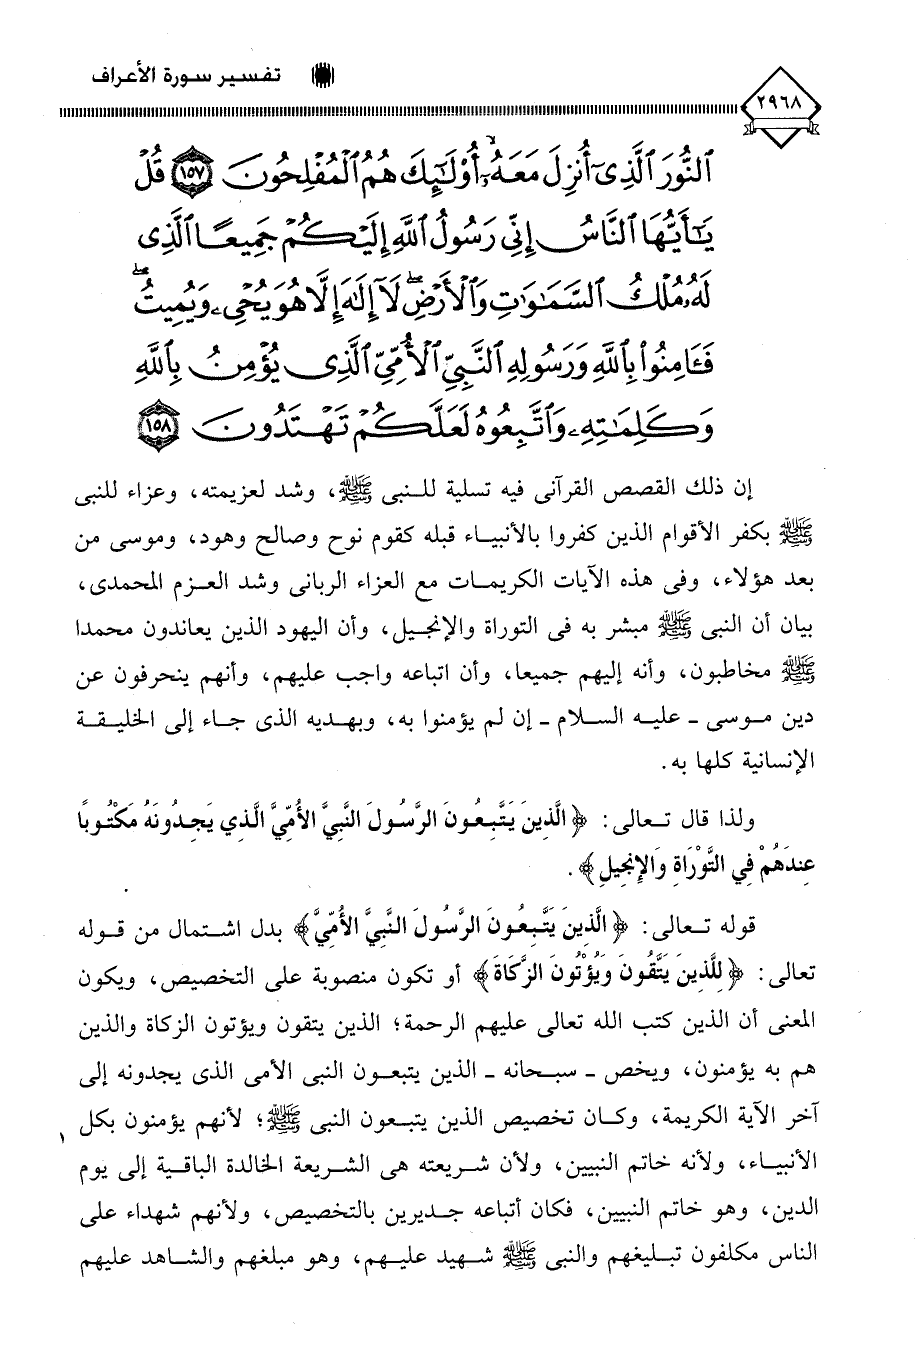 تفسير سورة الأعراف
٢٩٦٨
ٱلنُّورَ ٱلَّذِىٓ أُنزِلَ مَعَهُۥٓ ۙ أُو۟لَٰٓئِكَ هُمُ ٱلْمُفْلِحُونَ ١٥٧ قُلْ
يَٰٓأَيُّهَا ٱلنَّاسُ إِنِّى رَسُولُ ٱللَّهِ إِلَيْكُمْ جَمِيعًا ٱلَّذِى
لَهُۥ مُلْكُ ٱلسَّمَٰوَٰتِ وَٱلْأَرْضِ ۖ لَآ إِلَٰهَ إِلَّا هُوَ يُحْىِۦ وَيُمِيتُ ۖ
فَـَٔامِنُوا۟ بِٱللَّهِ وَرَسُولِهِ ٱلنَّبِىِّ ٱلْأُمِّىِّ ٱلَّذِى يُؤْمِنُ بِٱللَّهِ
وَكَلِمَٰتِهِۦ وَٱتَّبِعُوهُ لَعَلَّكُمْ تَهْتَدُونَ ١٥٨
إن ذلك القصص القرآنى فيه تسلية للنبى ﷺ، وشد لعزيمته، وعزاء للنبى
ﷺ بكفر الأقوام الذين كفروا بالأنبياء قبله كقوم نوح وصالح وهود، وموسى من
بعد هؤلاء، وفى هذه الآيات الكريمات مع العزاء الربانى وشد العزم المحمدى،
بيان أن النبى ﷺ مبشر به فى التوراة والإنجيل، وأن اليهود الذين يعاندون محمدا
ﷺ مخاطبون، وأنه إليهم جميعا، وأن اتباعه واجب عليهم، وأنهم ينحرفون عن
دين موسى ـ عليه السلام ـ إن لم يؤمنوا به، وبهديه الذى جاء إلى الخليقة
الإنسانية كلها به.
ولذا قال تعالى: ﴿الَّذِينَ يَتَّبِعُونَ الرَّسُولَ النَّبِيَّ الأُمِّيَّ الَّذِي يَجِدُونَهُ مَكْتُوبًا
عِندَهُمْ فِي التَّوْرَاةِ وَالإِنجِيلِ﴾.
قوله تعالى: ﴿الَّذِينَ يَتَّبِعُونَ الرَّسُولَ النَّبِيَّ الأُمِّيَّ﴾ بدل اشتمال من قوله
تعالى: ﴿لِلَّذِينَ يَتَّقُونَ وَيُؤْتُونَ الزَّكَاةَ﴾ أو تكون منصوبة على التخصيص، ويكون
المعنى أن الذين كتب الله تعالى عليهم الرحمة؛ الذين يتقون ويؤتون الزكاة والذين
هم به يؤمنون، ويخص ـ سبحانه ـ الذين يتبعون النبى الأمى الذى يجدونه إلى
آخر الآية الكريمة، وكان تخصيص الذين يتبعون النبى ﷺ؛ لأنهم يؤمنون بكل
الأنبياء، ولأنه خاتم النبيين، ولأن شريعته هى الشريعة الخالدة الباقية إلى يوم
الدين، وهو خاتم النبيين، فكان أتباعه جديرين بالتخصيص، ولأنهم شهداء على
الناس مكلفون تبليغهم والنبى ﷺ شهيد عليهم، وهو مبلغهم والشاهد عليهم